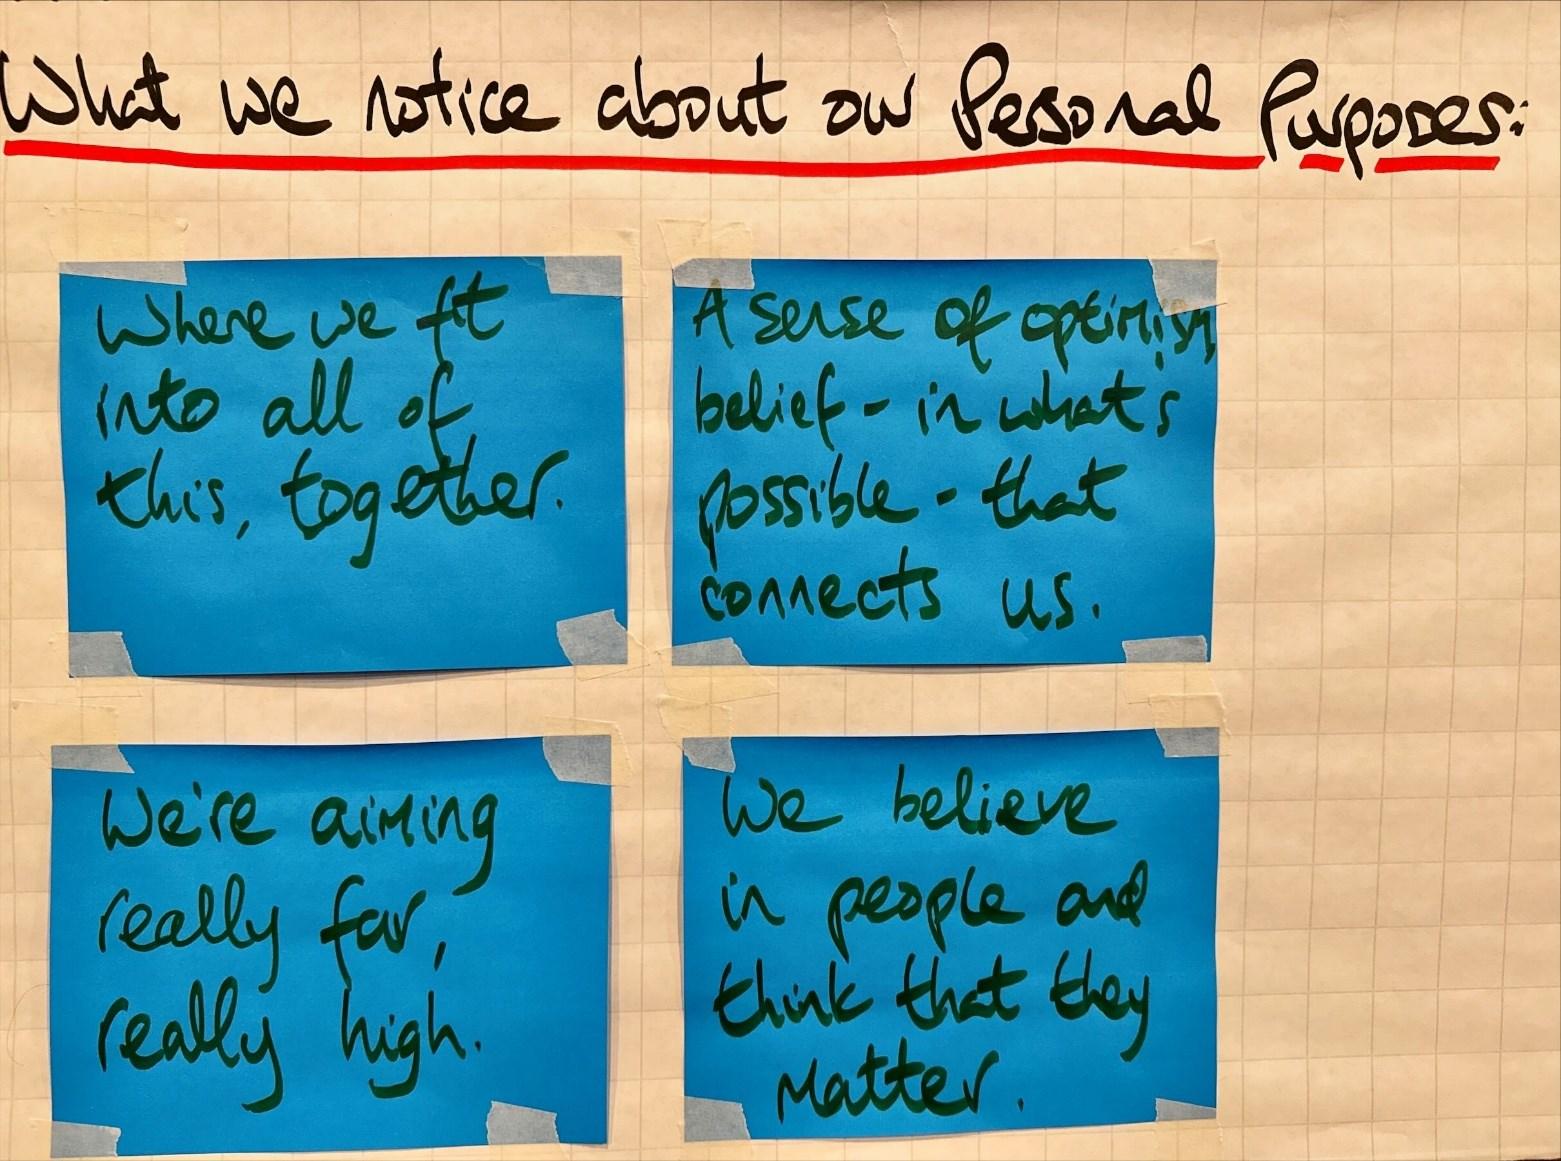 What we notice about our Personal Purposes:
Where we fit
into all of
this, together.
A sense of optimism,
belief - in what's
possible - that
connects us.
We're aiming
really far,
really high.
We believe
in people and
think that they
Matter.